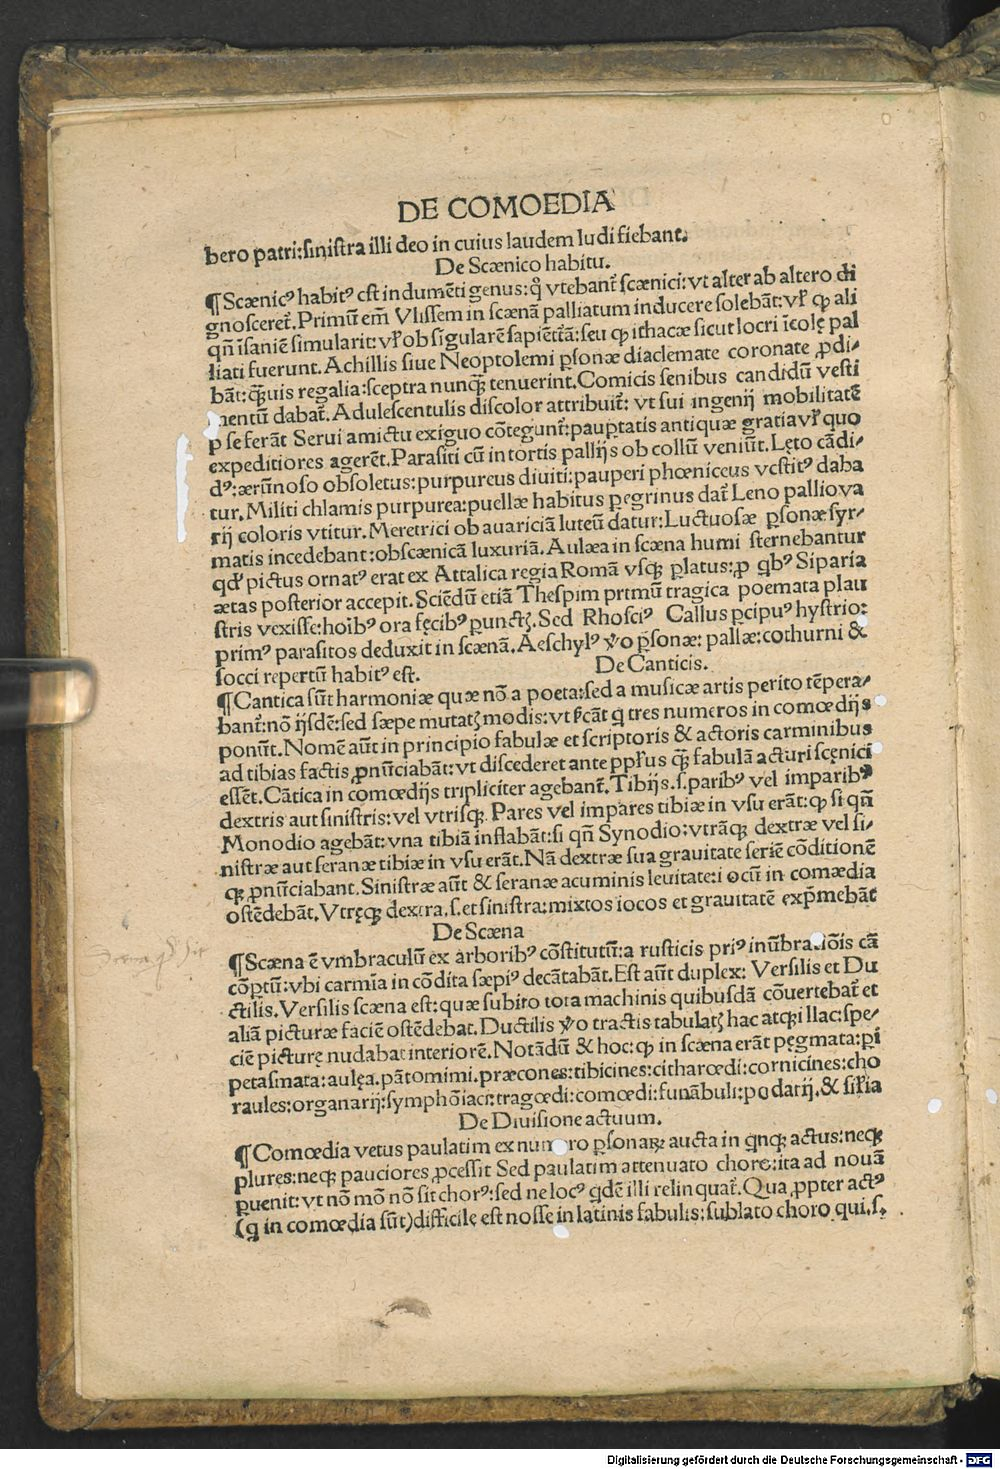 DE COMOEDIA
bero patri:sinistra illi deo in cuius laudem ludi fiebant.
De Scænico habitu.
¶Scænicꝰ habitꝰ est indumẽti genus:q̊ vtebant̃ scænici:vt alter ab altero di
gnosceret̃.Primũ em̃ Vlissem in scænã palliatum inducere solebãt:vl̃ ꝙ ali
qñ ĩsaniẽ simularit:vl̃ ob sigularẽ sapiẽtiã:seu ꝙ ithacæ sicut locri ĩcolę pal
liati fuerunt.Achillis siue Neoptolemi ꝑsonæ diademate coronate ꝓdi⸗
bãt:q̃uis regalia:sceptra nunq̃ tenuerint.Comicis senibus candidũ vesti
mentũ dabat̃.Adulescentulis discolor attribuit̃: vt sui ingenij mobilitatẽ
ꝑ se ferãt Serui amictu exiguo cõtegunt̃:pauꝑtatis antiquæ gratia vl̃ quo
expeditiores agerẽt.Parasiti cũ intortis pallijs ob collũ veniũt.Lęto cãdi⸗
dꝰ:ærũnoso obsoletus:purpureus diuiti:pauperi phœniceus vestitꝰ daba
tur.Militi chlamis purpurea:puellæ habitus ꝑegrinus dat̃ Leno pallio va
rij coloris vtitur.Meretrici ob auariciã luteũ datur:Luctuosæ ꝑsonæ syr⸗
matis incedebant:obscænicã luxuriã.Aulæa in scæna humi sternebantur
qd̃ pictus ornatꝰ erat ex Attalica regia Romã vsqꝫ ꝑlatus:ꝓ qbꝰ Siparia
ætas posterior accepit.Sciẽdũ etiã Thespim primũ tragica poemata plau
stris vexisse:hoĩbꝰ ora fęcibꝰ ꝑunctꝭ.Sed Rhosciꝰ Callus ꝑcipuꝰ hystrio:
primꝰ parasitos deduxit in scænã.Aeschylꝰ ꝟo ꝑsonæ: pallæ:cothurni &
socci repertũ habitꝰ est.
De Canticis.
¶Cantica sũt harmoniæ quæ nõ a poeta:sed a musicæ artis perito tẽpera⸗
bant̃:nõ ijsdẽ:sed sæpe mutatꝭ modis:vt ſcãt q̃ tres numeros in comœdijs
ponũt.Nomẽ aũt in principio fabulæ et scriptoris & actoris carminibus
ad tibias factis ꝓnũciabãt:vt discederet ante ppl̃us q̃ fabulã acturi scęnici
essẽt.Cãtica in comœdijs tripliciter agebant̃.Tibijs.s.paribꝰ vel imparibꝰ
dextris aut sinistris:vel vtrisqꝫ.Pares vel impares tibiæ in vsu erãt:ꝙ si qñ
Monodio agebãt:vna tibiã inflabãt:si qñ Synodio:vtrãqꝫ dextræ vel si⸗
nistræ aut seranæ tibiæ in vsu erãt.Nã dextræ sua grauitate seriẽ cõditionẽ
qꝫ ꝓnũciabant.Sinistræ aũt & seranæ acuminis leuitate:iocũ in comædia
ostẽdebãt.Vtręqꝫ dextra.s.et sinistra:mixtos iocos et grauitatẽ exp̃mebãt
De Scæna
¶Scæna ẽ vmbraculũ ex arboribꝰ cõstitutũ:a rusticis priꝰ inũbratiõis cã
cõꝑtũ:vbi carmĩa in cõdita sæpiꝰ decãtabãt.Est aũt duplex: Versilis et Du
ctilis.Versilis scæna est:quæ subito tota machinis quibusdã cõuertebat̃ et
aliã picturæ faciẽ ostẽdebat.Ductilis ꝟo tractis tabulatꝭ hac atqꝫ illac:spe⸗
ciẽ picturę nudabat interiorẽ.Notãdũ & hoc:ꝙ in scæna erãt pęgmata:pi
petasmata:aulęa.pãtomimi.præcones:tibicines:citharœdi:cornicines:cho
raules:organarij:symphõiaci:tragœdi:comœdi:funãbuli:podarij.& sil̃ia
De Diuisione actuum.
¶Comœdia vetus paulatim ex numero ꝑsonaꝝ aucta in q̃nqꝫ actus:neqꝫ
plures:neqꝫ pauciores ꝓcessit Sed paulatim attenuato choro:ita ad nouã
ꝑuenit: vt nõ mõ nõ sit chorꝰ:sed ne locꝰ q̃dẽ illi relinquat̃.Qua ꝓpter actꝰ
(q̃ in comœdia sũt)difficile est nosse in latinis fabulis:sublato choro qui.s.
Digitalisierung gefördert durch die Deutsche Forschungsgemeinschaft - DFG